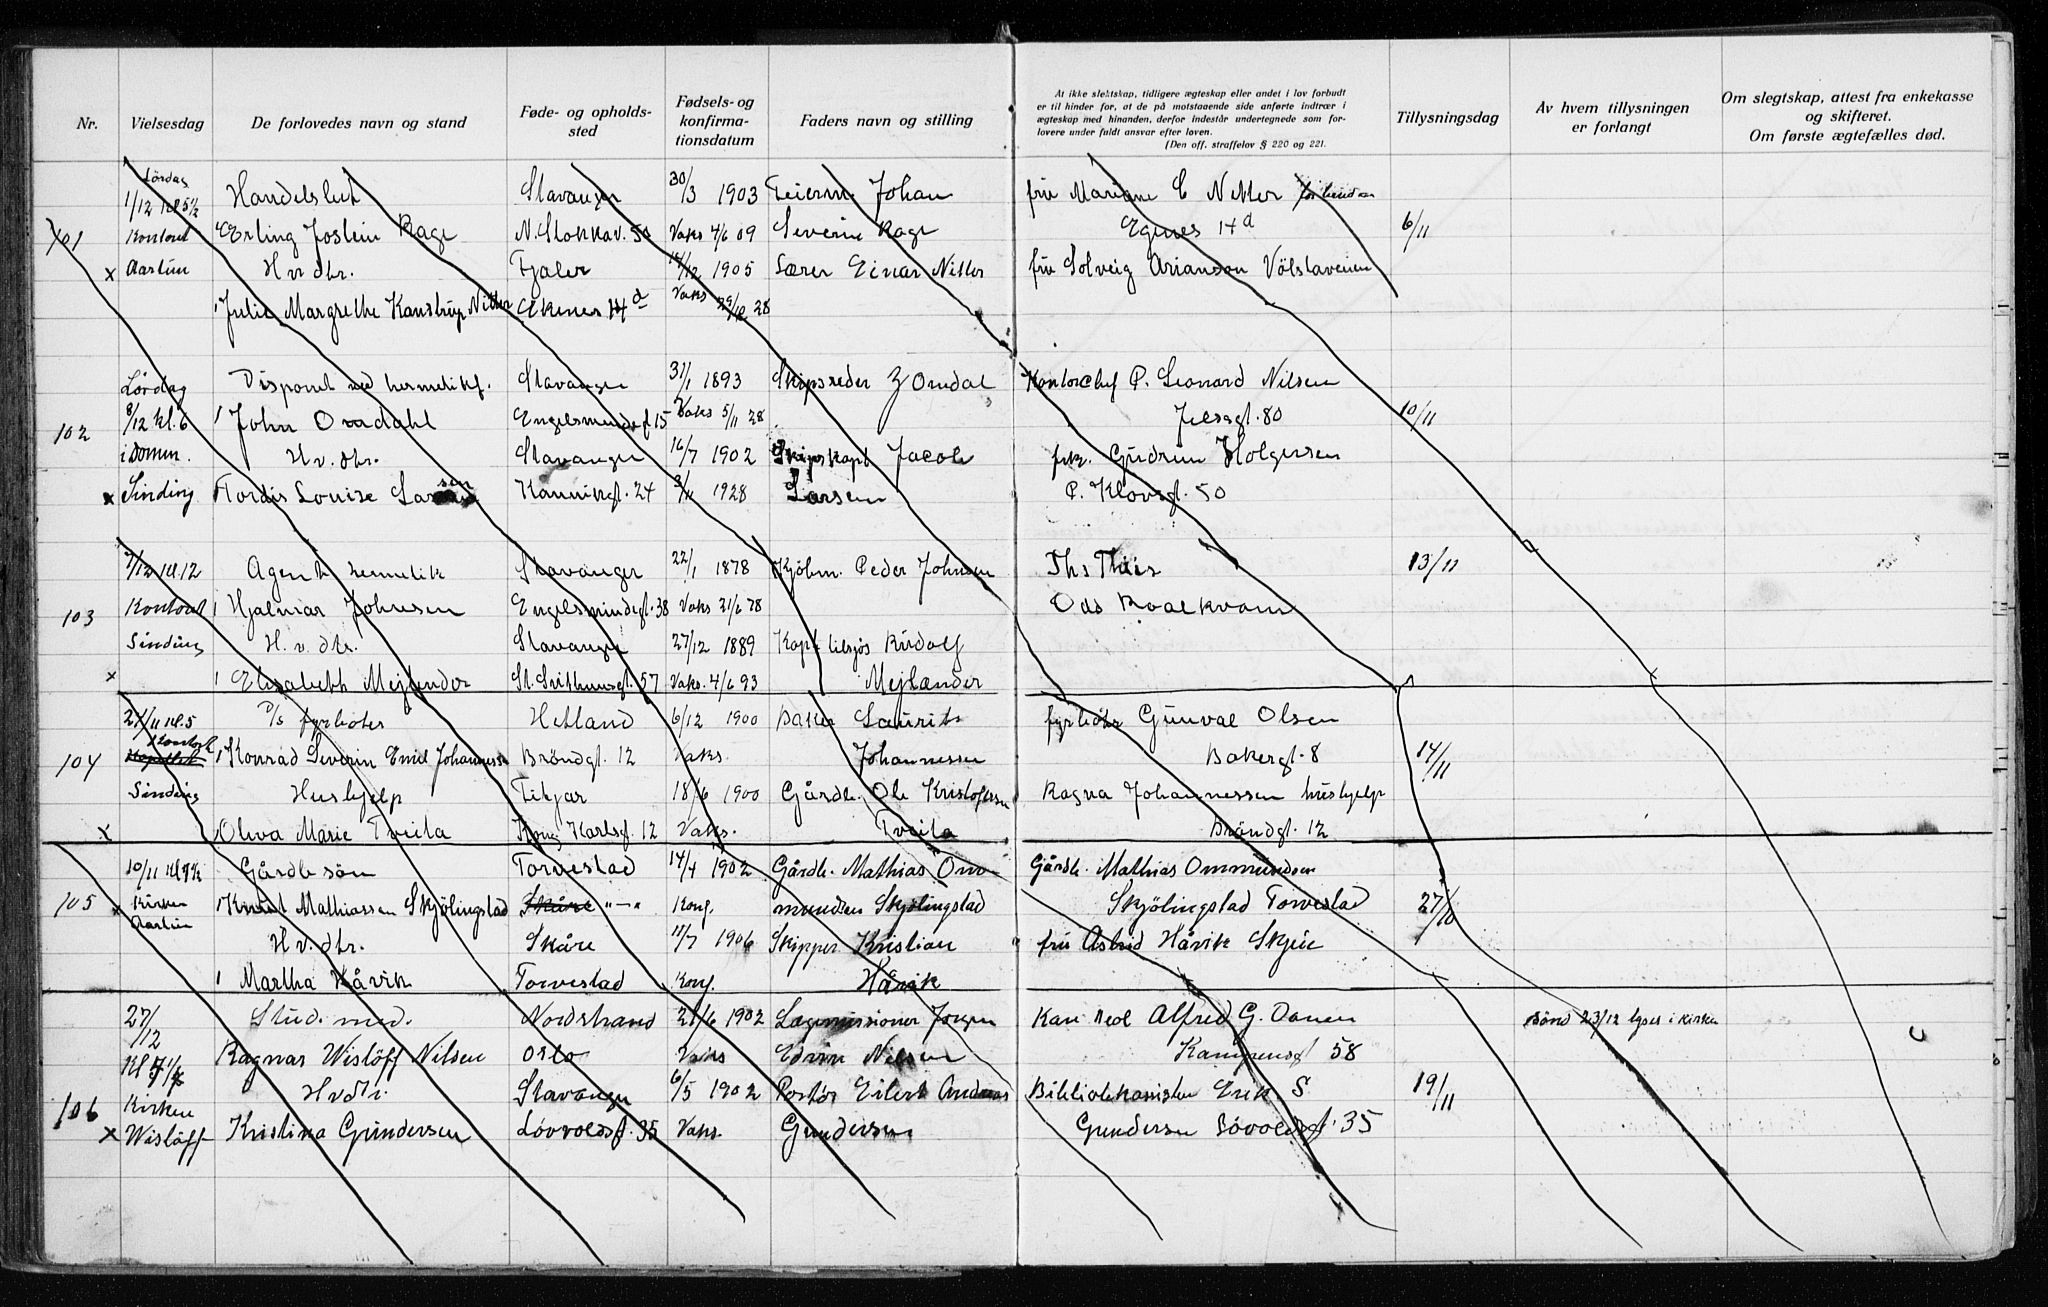 Nr.
Vielsesdag
De forlovedes navn og stand
Føde- og opholds-
sted
Fødsels- og
konfirma-
tionsdatum
Faders navn og stilling
At ikke slektskap, tidligere ægteskap eller andet i lov forbudt
er til hinder for, at de på motstaaende side anførte indtrær i
ægteskap med hinanden, derfor indestår undertegnede som for-
lovere under fuldt ansvar efter loven.
(Den off. straffelov § 220 og 221.
Tillysningsdag
Av hvem tillysningen
er forlangt
Om slegtskap, attest fra enkekasse
og skifteret.
Om første ægtefælles død.
Lørdag
1/12 kl 5½ Stavanger 30/3 1903 Johan fru Mariane C Nitter
101 Kontoret Erling Jostein Rage N. Stokkav. 50 Vaks 4/6 09 Severin Rage Egenes 14d 6/11
x Aastun H.v. dtr. Fjaler 14/12 1905 Lærer Einar Nitter fru Solveig
Julie Margrethe Kanstrup Nitter Ekenes 14d Vaks 28
Lørdag Disponent ved hermetikf. Stavanger 31/1 1893 Skipsreder Z Omdal Kontorchef P. Leonard Nilsen
102 8/12 kl. 6 John Omdahl Engelsmindegt 15 Vaks 5/11 28 Jelsagt. 80 10/11
i Domk. H.v. dtr. Stavanger 16/7 1902 Skipskapt Jacob frk. Gudrun Holgersen
x Sinding Tordis Louise Larsen Kannikgt. 24 1928 Larsen P. Klovsgt. 50
7/12 kl. 12 Agent hermetik Stavanger 22/1 1878 Kjøbm. Peder Johnsen Ths Thiis 13/11
103 Kontoret Hjalmar Johnsen Engelsmindegt. 38 Vaks 21/6 28 Odd
Sinding H.v. dtr. Stavanger 27/12 1889 Kapt. tilsjøs Rudolf
x Elisabeth Mejlænder St. Svithunsgt. 57 Vaks. 4/6 93 Mejlænder
kl. 5 D/S fyrbøter Hetland 6/12 1900 Baker Laurits fyrbøter Gunval Olsen
104 Kontoret Konrad Severin Emil Johannessen Brøndgt. 12 Vaks. Johannessen Bakergt. 8 14/11
Sinding Hushjelp Tikjør 18/6 1900 Gårdb. Ole Kristofersen Ragna Johannessen hushjelp
x Oliva Marie Tveita Kong Karlsgt. 12 Vaks. Tveita Brøndgt. 12
10/11 Gårdbr søn Torvestad 14/4 1902 Gårdb. Mathias Om- Gårdb. Mathias Ommundsen
105 x Kirken Knut Mathiassen Skjølingstad Skåre Kong. mundsen Skjølingstad Skjølingstad Torvestad 27/10
Aastun H.v. dtr. Skåre 11/7 1906 Skipper Kristian fru Astrid Håvik Skjeie
Martha Håvik Torvestad Kong. Håvik
27/12 Stud. med. Nordstrand 21/6 1902 Jørgen Alfred G. sønd 23/12 lyses i kirken
Ragnar Wisløff Nilsen Oslo Vaks Edvin Nilsen Kampensgt 58
kl H.v. dtr. Stavanger 6/5 1902 Portør Eilert Andreas Erik S 19/11
106 Kirken
x Wisløff Kristina Gundersen Løvvoldsgt. 35 Vaks. Gundersen Gundersen Løvoldsgt. 35